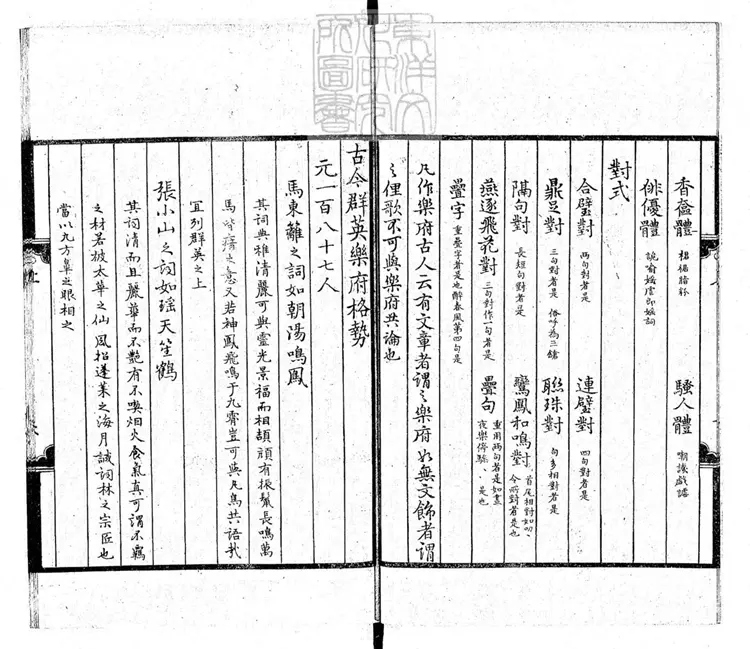 香奩體 裙裾脂粉 騷人體 嘲譏戲謔
俳優體 詭喻婬虐即婬詞
對式
合璧對 兩句對者是 連璧對 四句對者是
鼎足對 三句對者是俗呼為三鎗 聯珠對 句多相對者是
隔句對 長短句對者是 鸞鳳和鳴對 首尾相對如叨叨令所對者是也
燕逐飛花對 三句對作一句者是 疊句 重用兩句者是如晝夜樂停驂、是也
疊字 重疊字者是也醉春風第四句是
凡作樂府古人云有文章者謂之樂府如無文飾者謂
之俚歌不可與樂府共論也
古今群英樂府格勢
元一百八十七人
馬東籬之詞如朝陽鳴鳳
其詞典雅清麗可與靈光景福而相頡頏有振鬣長鳴萬
馬皆瘖之意又若神鳳飛鳴于九霄豈可與凡鳥共語哉
宜列群英之上
張小山之詞如瑤天笙鶴
其詞清而且麗華而不艷有不喫烟火食氣真可謂不羈
之材若被太華之仙風招蓬萊之海月誠詞林之宗匠也
當以九方皋之眼相之
東洋文化研究所圖書